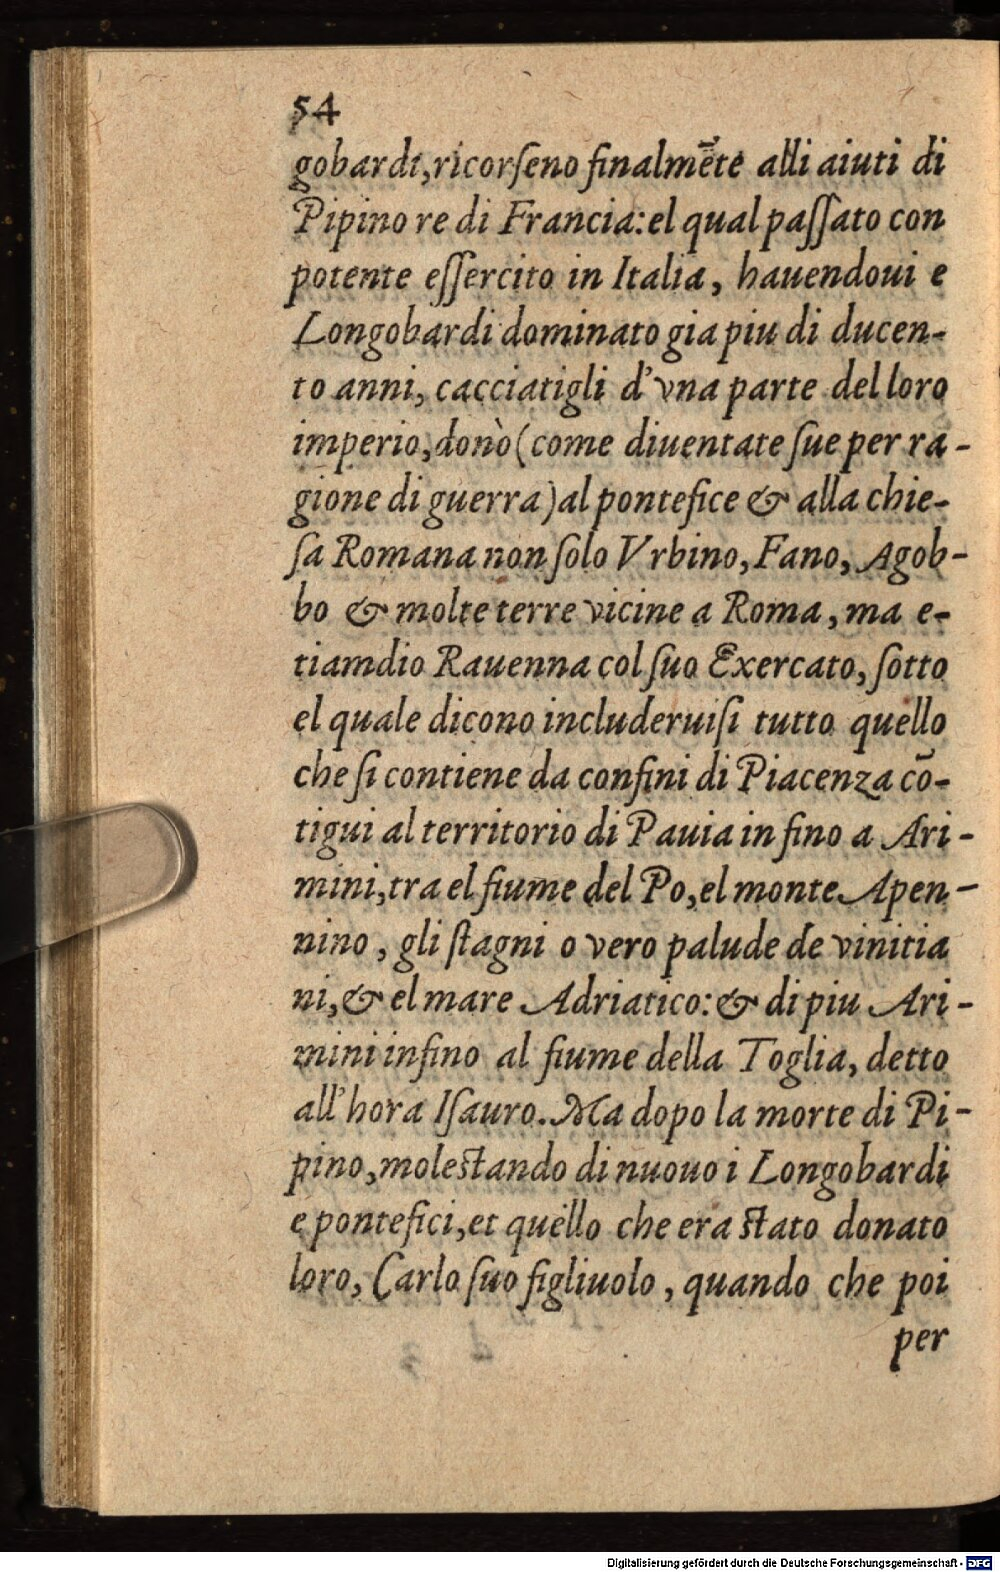 54
gobardi,ricorſeno finalmēte alli aiuti di
Pipino re di Francia:el qual paſſato con
potente eſſercito in Italia, hauendoui e
Longobardi dominato gia piu di ducen-
to anni, cacciatigli d'vna parte del loro
imperio,donò(come diuentate ſue per ra-
gione di guerra)al pontefice & alla chie-
ſa Romana non ſolo Vrbino,Fano, Agob-
bo & molte terre vicine a Roma,ma e-
tiamdio Rauenna col ſuo Exercato, ſotto
el quale dicono includeruiſi tutto quello
che ſi contiene da confini di Piacenza cō-
tigui al territorio di Pauia in fino a Ari-
mini,tra el fiume del Po,el monte Apen-
nino , gli ſtagni o vero palude de vinitia
ni,& el mare Adriatico:& di piu Ari-
mini infino al fiume della Toglia, detto
all'hora Iſauro.Ma dopo la morte di Pi-
pino,moleſtando di nuouo i Longobardi
e pontefici,et quello che era ſtato donato
loro, Carlo ſuo figliuolo , quando che poi
per
Digitalisierung gefördert durch die Deutsche Forschungsgemeinschaft - DFG